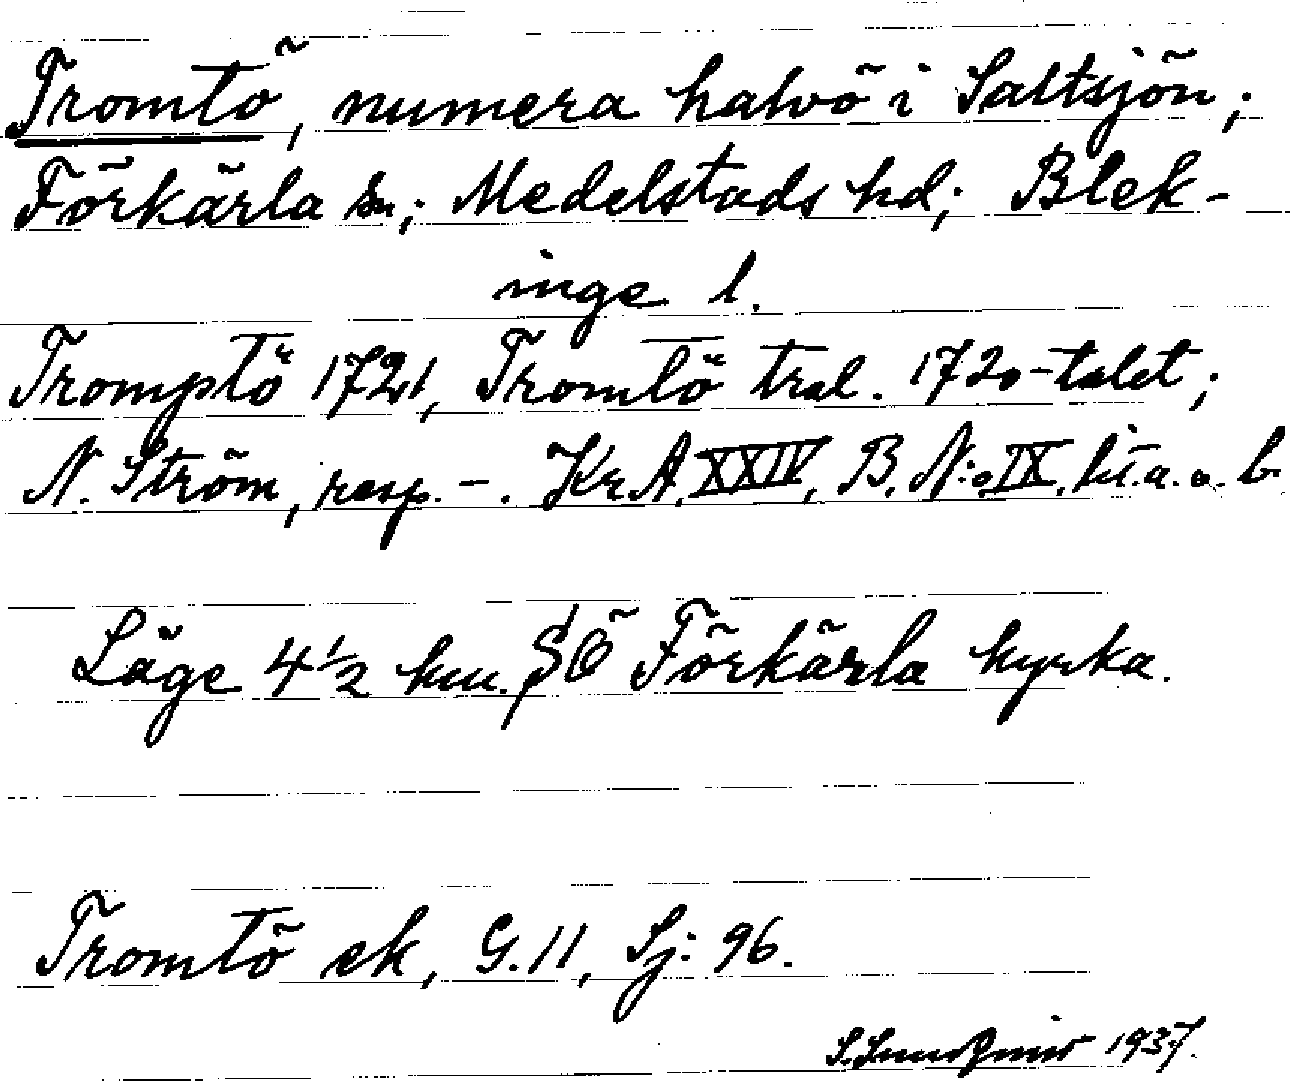 Tromtö, numera halvö i Saltsjön;
Förkärla sn; Medelstads hd; Blek-
inge l.
Tromptö 1721, Tromtö tral. 1720-talet;
N. Ström, resp. -. Kr. A. XXIV, B. N:o IX, lit. a. o. b.
Läge 4 1/2 km. SÖ Förkärla kyrka.
Tromtö ek, G. 11, Sj: 96.
1937.